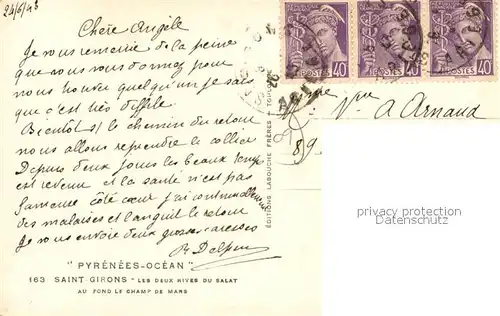 24/6/43
Chère Angèle
Je vous remercie de la peine
que vous vous donnez pour
nous trouver quelqu'un je sais
que c'est très difficile
Bientôt le chemin du retour
nous allons reprendre le collier
Depuis deux jours les beaux temps
est revenu et la santé n'est pas
fameuse côté cœur j'ai continuellement
des malaises et languit le retour
Je vous envoie deux grosses caresses
R Delpeu
"PYRÉNÉES-OCÉAN"
163 SAINT GIRONS - LES DEUX RIVES DU SALAT
AU FOND LE CHAMP DE MARS
ÉDITIONS LABOUCHE FRÈRES - TOULOUSE
POSTES 40
POSTES 40
40
Vve A Arnaud
89
privacy protection